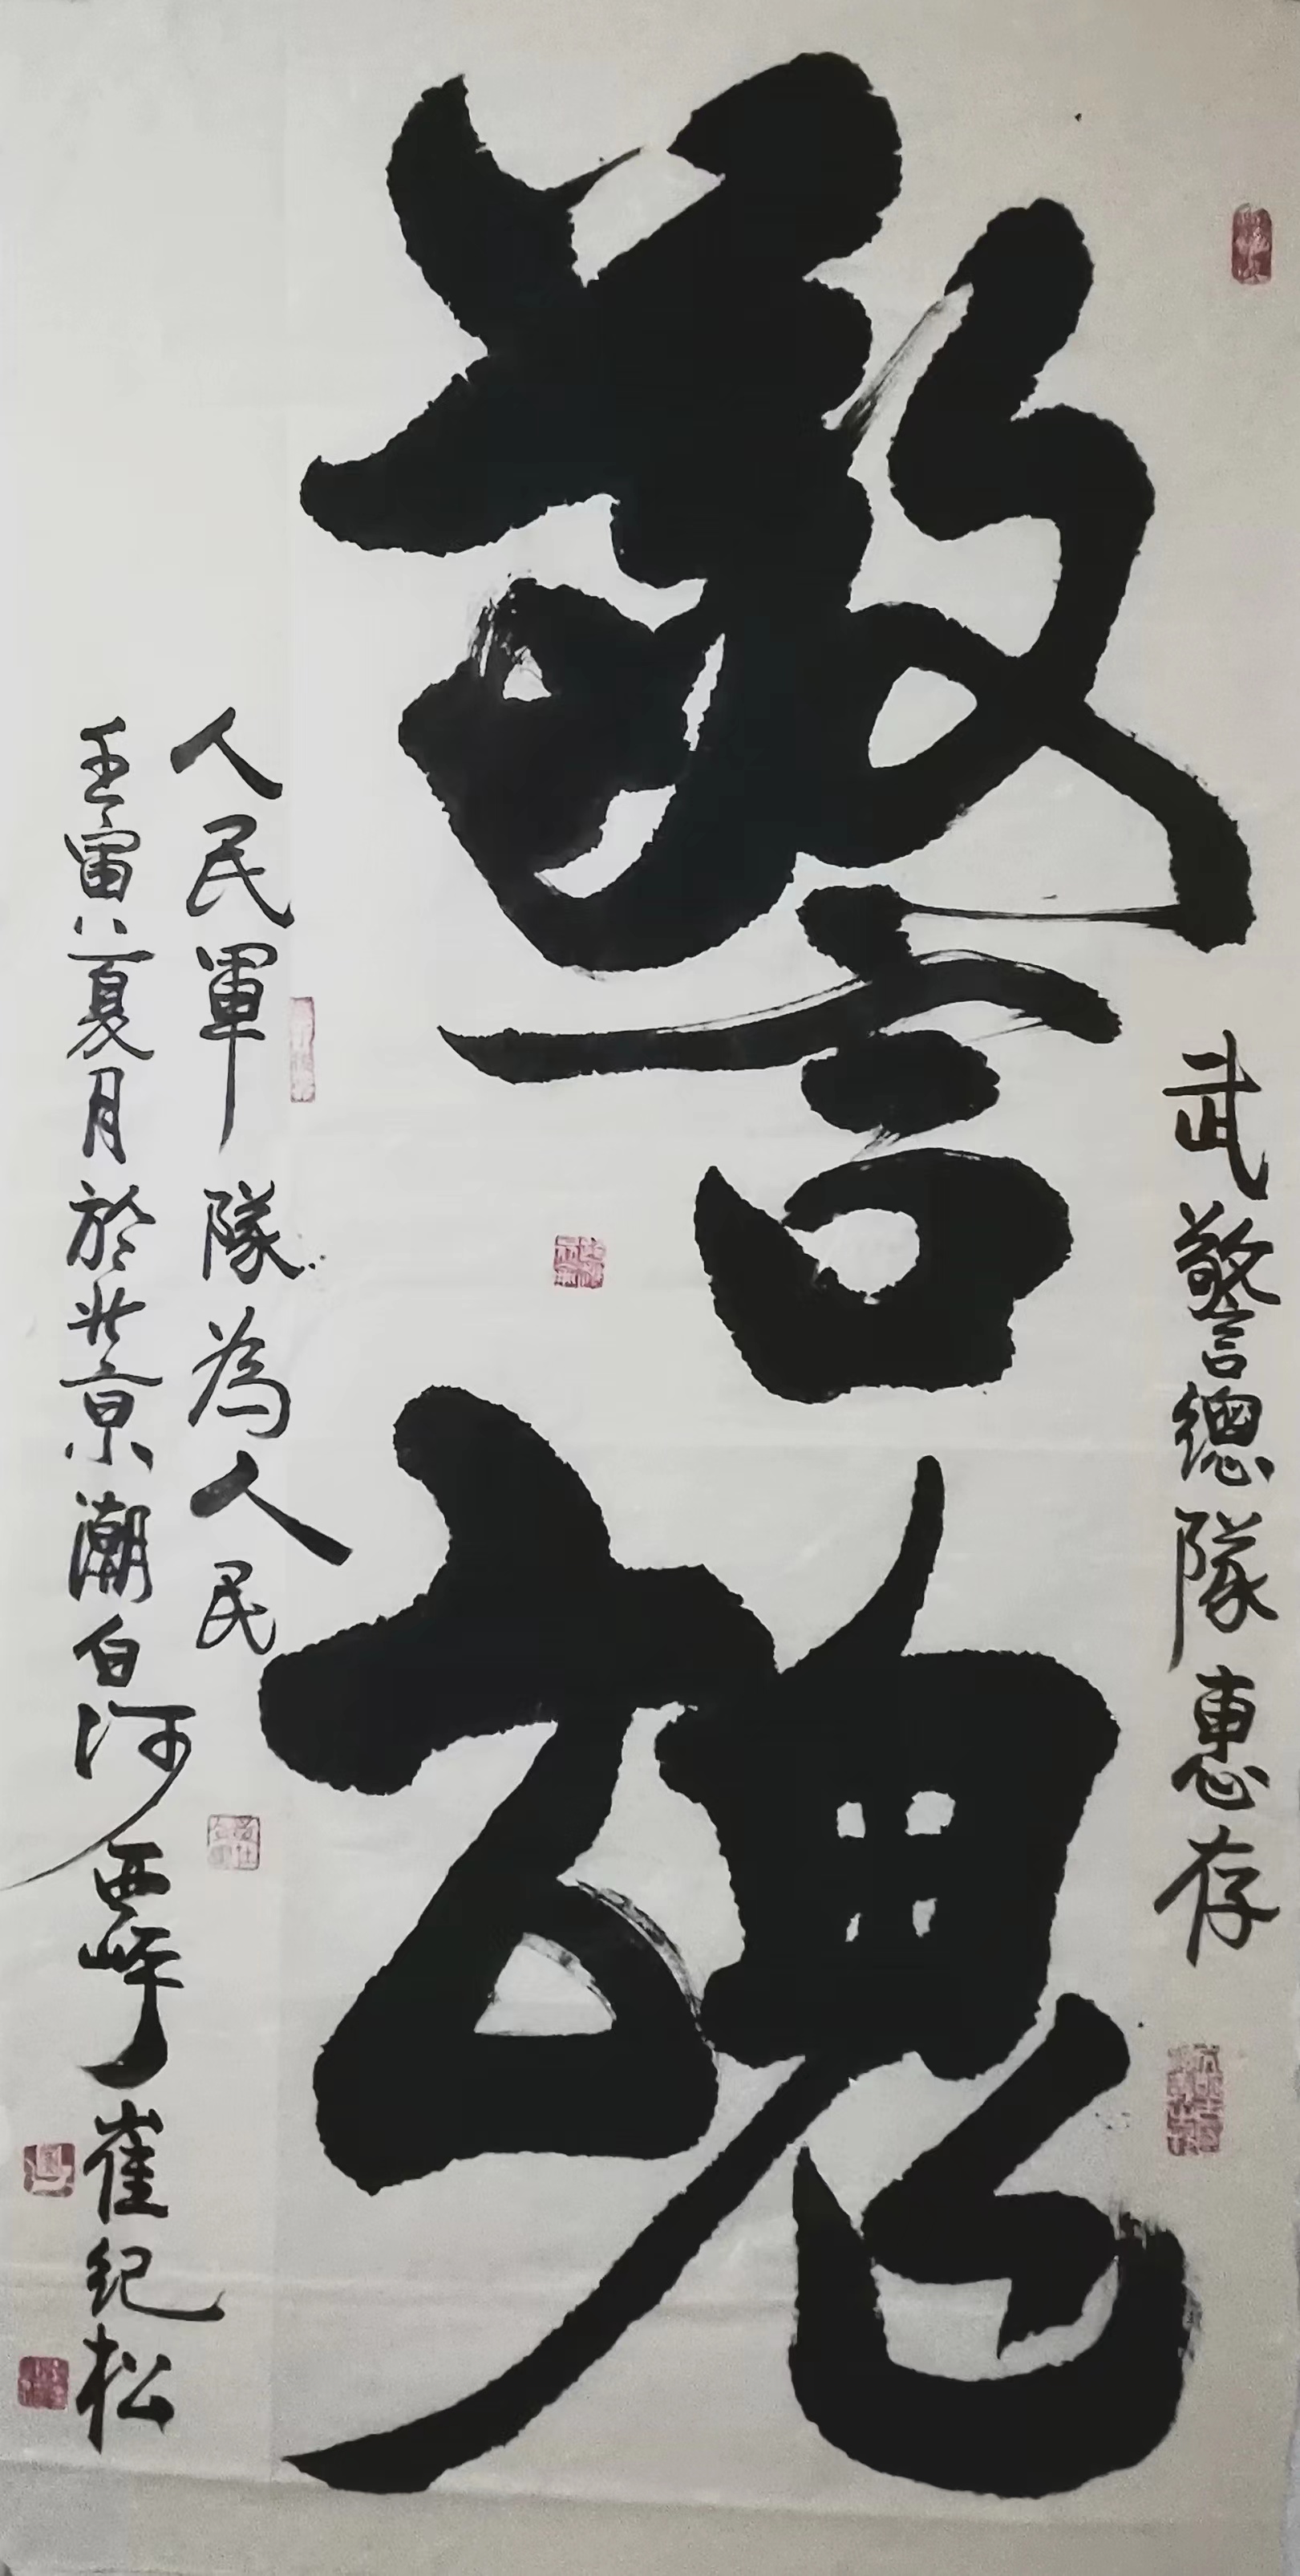 武警總隊惠存
警魂
人民軍隊為人民
壬寅夏月於北京潮白河西岸崔纪松